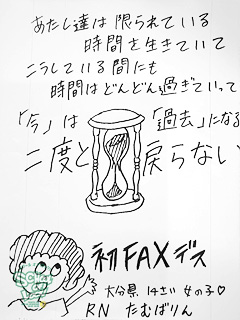 あたし達は限られている
時間を生きていて
こうしている間にも
時間はどんどん過ぎていって
「今」は「過去」になる
二度と戻らない
初FAXデス
大分県 14さい 女の子♡
RN たむばりん